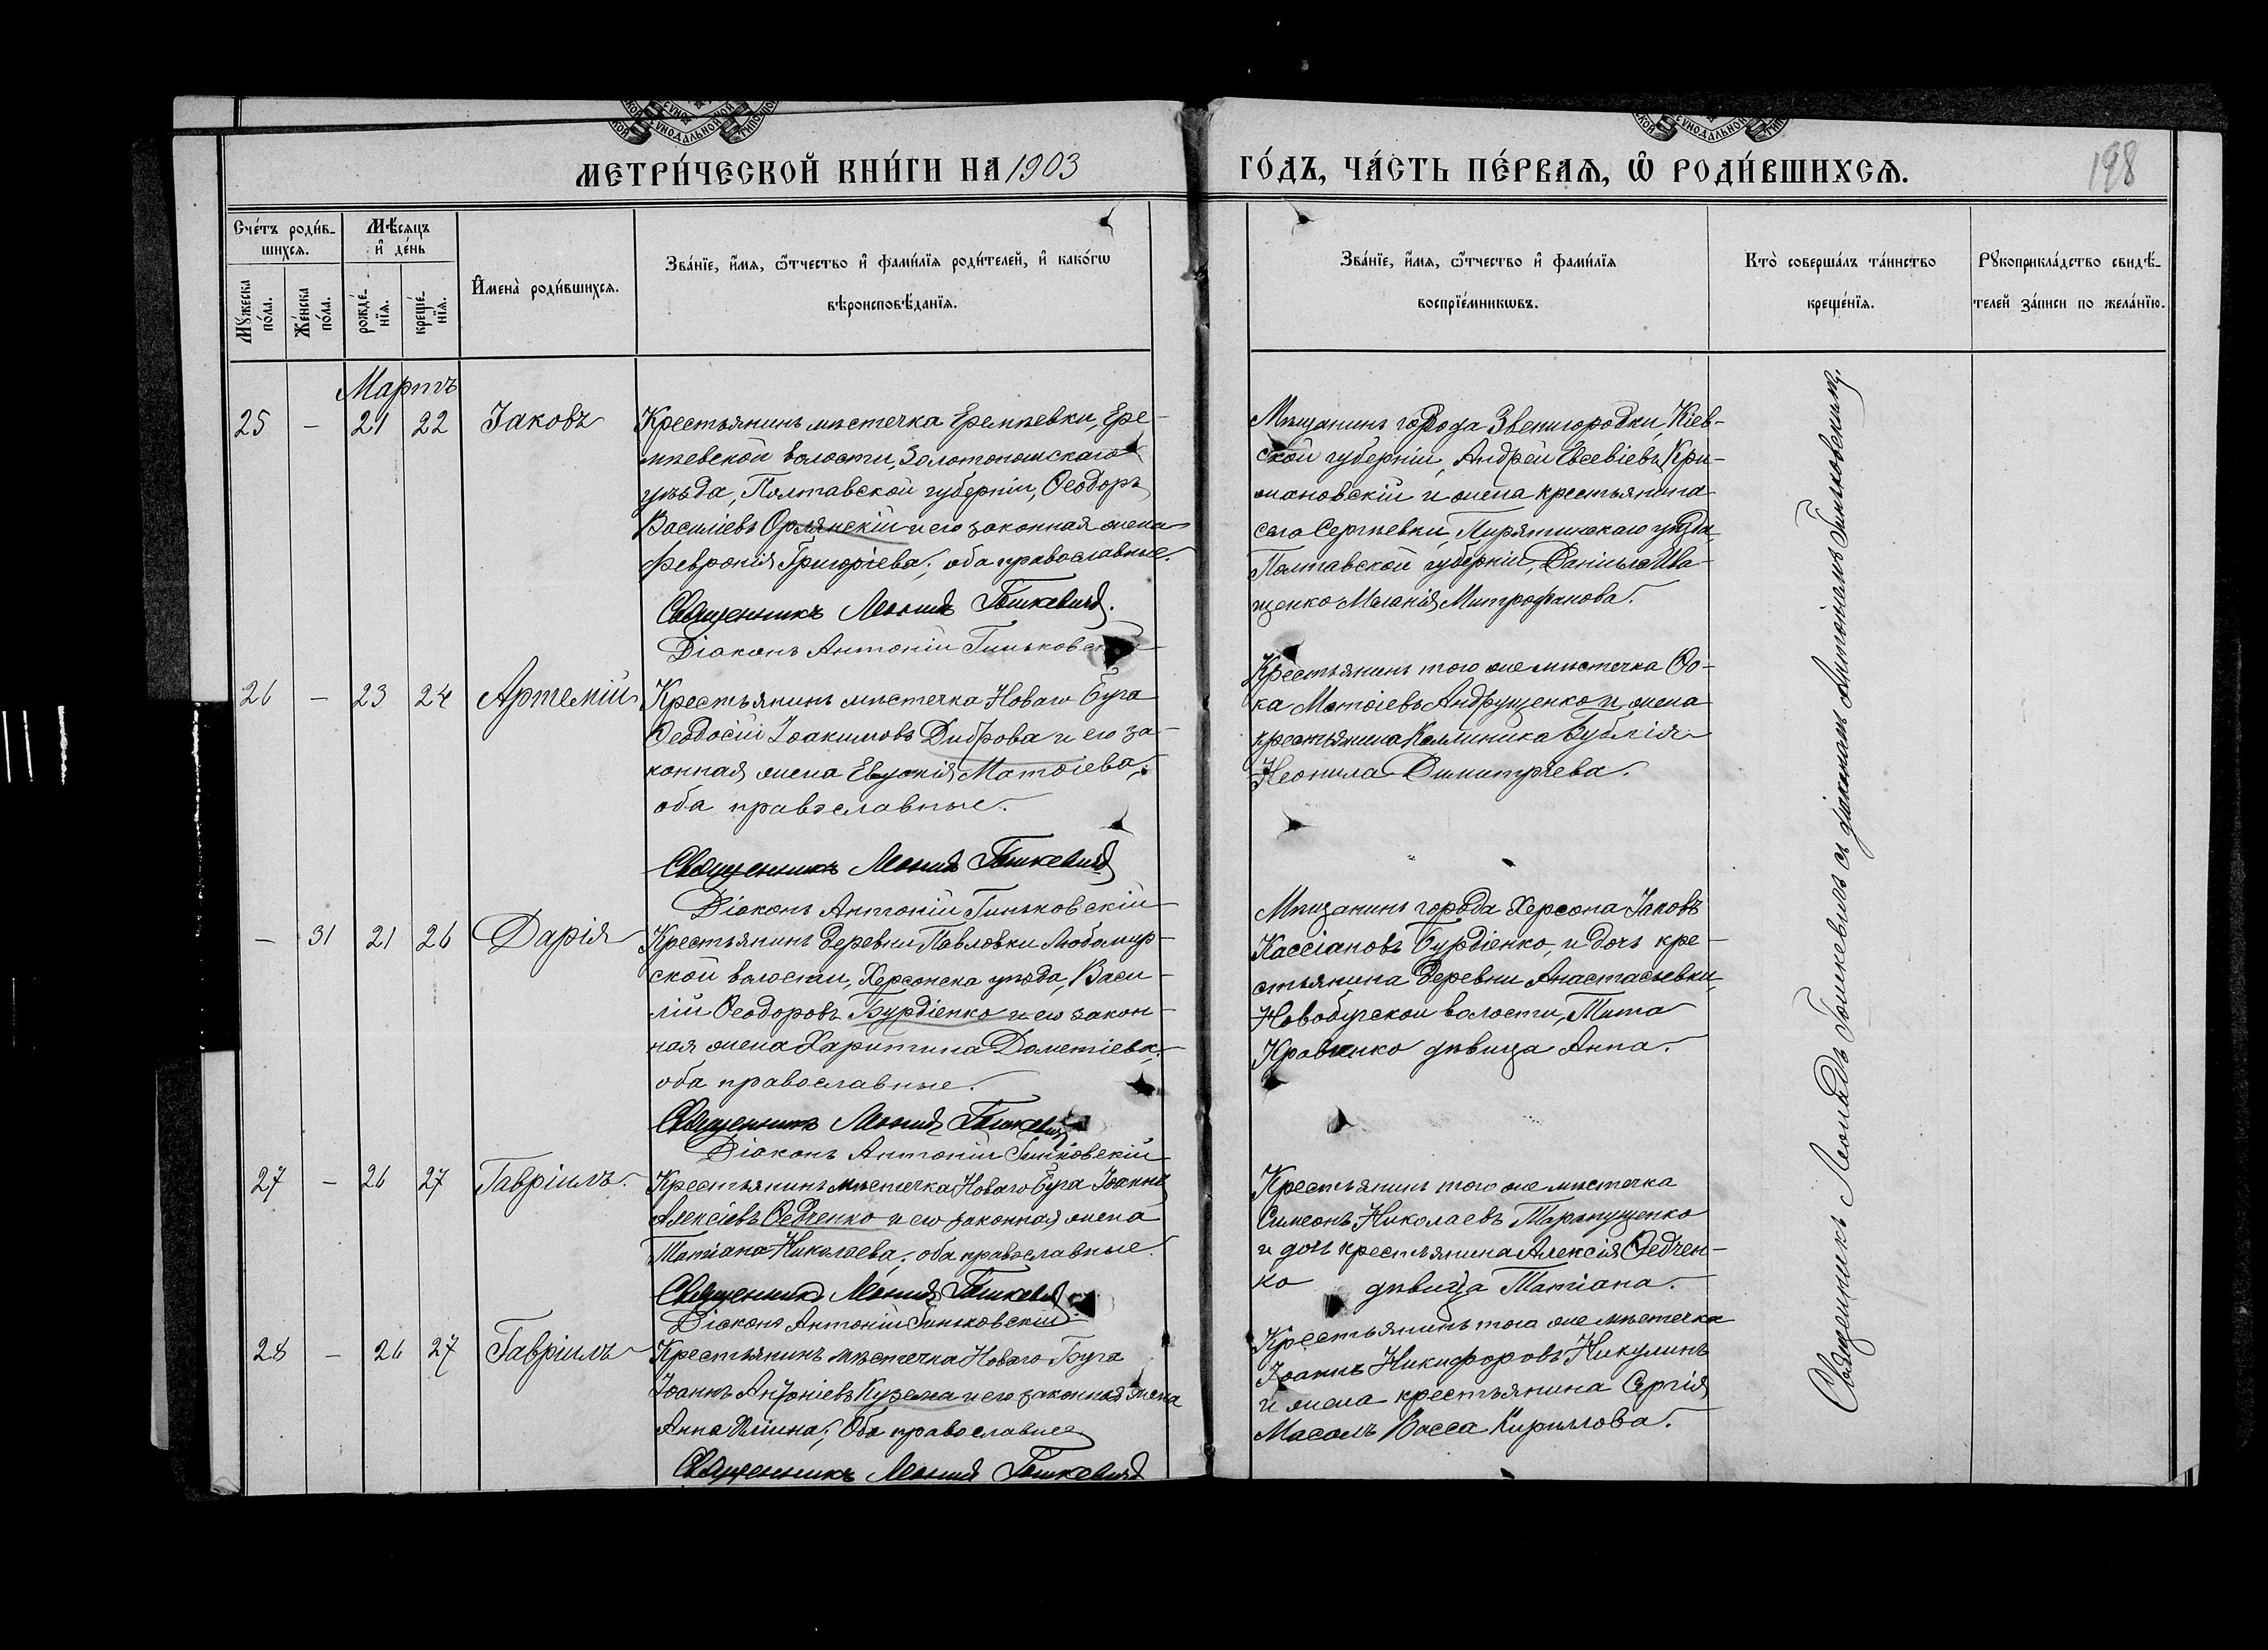 МЕТРИ́ЧЕСКОЙ КНИ́ГИ НА 1903 ГО́ДЪ, ЧА́СТЬ ПЕ́РВАѦ, Ѡ҆ РОДИ́ВШИХСѦ.
198
Сче́тъ роди́в-
шихсѧ.
Мѣ́сѧцъ
и҆ де́нь
Мꙋ́жеска
по́ла.
Же́нска
по́ла.
рожде́-
нїѧ.
креще́-
нїѧ.
И҆мена̀ роди́вшихсѧ.
Зва́нїе, и҆́мѧ, ѻ҆́тчество и҆ фами́лїѧ роди́телей, и҆ како́гѡ
вѣроисповѣ́данїѧ.
Зва́нїе, и҆́мѧ, ѻ҆́тчество и҆ фами́лїѧ
воспрїе́мникѡвъ.
Кто̀ соверша́лъ та́инство
креще́нїѧ.
Рꙋкоприкла́дство свидѣ́-
телей за́писи по жела́нїю.
Мартъ
25 - 21 22 Іаковъ
Крестьянинъ мѣстечка Еремѣевки, Ере-
мѣевской волости, Золотоношскаго
уѣзда, Полтавской губерніи, Ѳеодоръ
Василіевъ Орлянскій и его законная жена
Февронія Григоріева; оба православные.
Священникъ Леонидъ Гошкевичъ.
Діаконъ Антоній Гиньковскій
Мѣщанинъ города Звенигородки, Кіев-
ской губерніи, Андрей Евсевіевъ Кри-
жановскій и жена крестьянина
села Сергѣевки, Пирятинскаго уѣзда,
Полтавской губерніи, Даніила Ива-
щенко Меланія Митрофанова.
26 - 23 24 Артемій
Крестьянинъ мѣстечка Новаго Буга
Ѳеодосій Іоакимовъ Диброва и его за-
конная жена Евдокія Матѳіева;
оба православные.
Священникъ Леонидъ Гошкевичъ
Діаконъ Антоній Гиньковскій
Крестьянинъ того же мѣстечка Ѳо-
ка Матѳіевъ Андрущенко и жена
крестьянина Каллиника Бублія
Неонила Димитріева.
- 31 21 26 Дарія
Крестьянинъ деревни Павловки Любомир-
ской волости, Херсонска уѣзда, Васи-
лій Ѳеодоровъ Бурдіенко и его закон-
ная жена Харитина Дометіева;
оба православные.
Священникъ Леонидъ Гошкевичъ
Діаконъ Антоній Гиньковскій
Мѣщанинъ города Херсона Іаковъ
Кассіановъ Бурдіенко, и дочь кре-
стьянина деревни Анастасьевки,
Новобугской волости, Тита
Кравченко дѣвица Анна.
27 - 26 27 Гавріилъ.
Крестьянинъ мѣстечка Новаго Буга Іоаннъ
Алексіевъ Ѳедченко и его законная жена
Татіана Николаева; оба православные.
Священникъ Леонидъ Гошкевичъ
Діаконъ Антоній Гиньковскій
Крестьянинъ того же мѣстечка
Симеонъ Николаевъ Тарапущенко
и дочь крестьянина Алексія Ѳедчен-
ко дѣвица Татіана.
28 - 26 27 Гавріилъ
Крестьянинъ мѣстечка Новаго Буга
Іоаннъ Антоніевъ Кузема и его законная жена
Анна Иліина; Оба православные
Священникъ Леонидъ Гошкевичъ
Крестьянинъ того же мѣстечка
Іоаннъ Никифоровъ Никулинъ
и жена крестьянина Сергія
Масалъ Васса Кириллова.
Священникъ Леонидъ Гошкевичъ съ діакономъ Антоніемъ Гиньковскимъ.